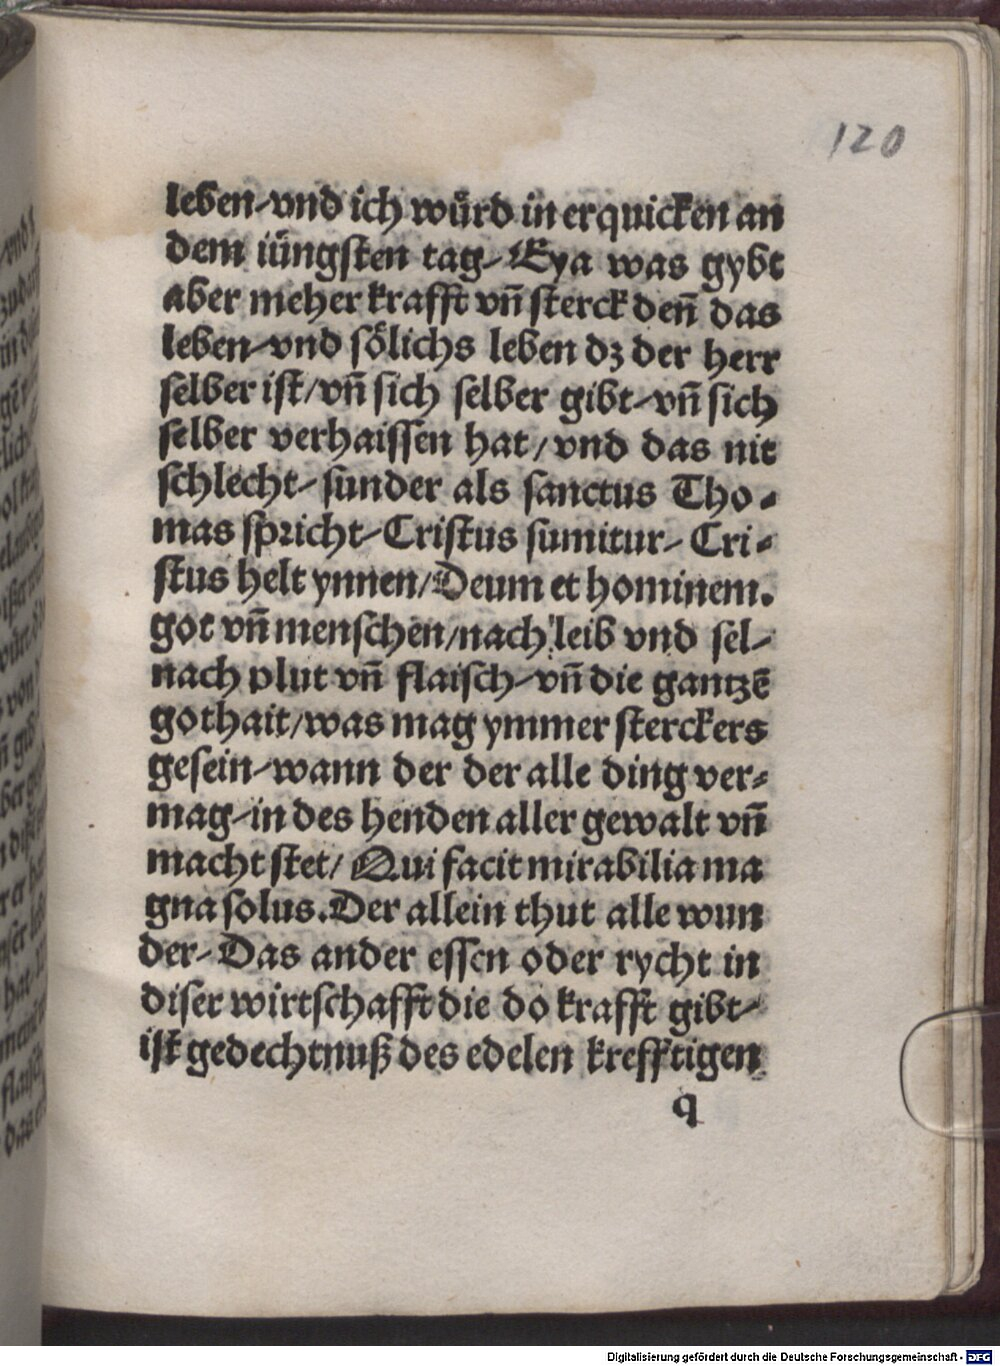 120
leben/vnd ich wuͤrd in erquicken an
dem iüngsten tag/ Eya was gybt
aber meher krafft vñ sterck deñ das
leben/vnd soͤlichs leben dz der herr
selber ist/vñ sich selber gibt/vñ sich
selber verhaissen hat/vnd das nit
schlecht/ sunder als sanctus Tho-
mas spricht/Cristus sumitur/ Cri-
stus helt ynnen/Deum et hominem.
got vñ menschen/nach leib vnd sel/
nach plut vñ flaisch/vñ die gantzē
gothait/was mag ymmer sterckers
gesein/wann der der alle ding ver-
mag/in des henden aller gewalt vñ
macht stet/ Qui facit mirabilia ma
gna solus.Der allein thut alle wun
der/ Das ander essen oder rycht in
diser wirtschafft die do krafft gibt/
ist gedechtnuß des edelen krefftigen
q
Digitalisierung gefördert durch die Deutsche Forschungsgemeinschaft - DFG